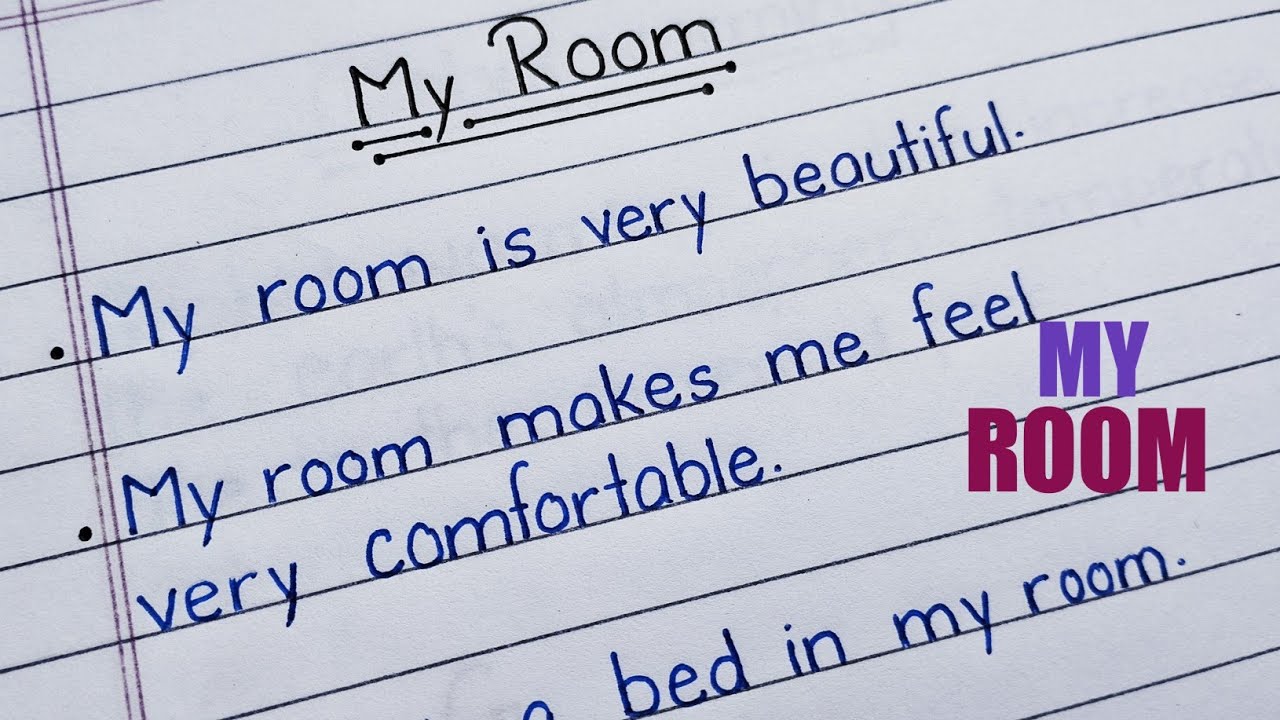 My Room
. My room is very beautiful.
. My room makes me feel
very comfortable.
bed in my room.
MY
ROOM